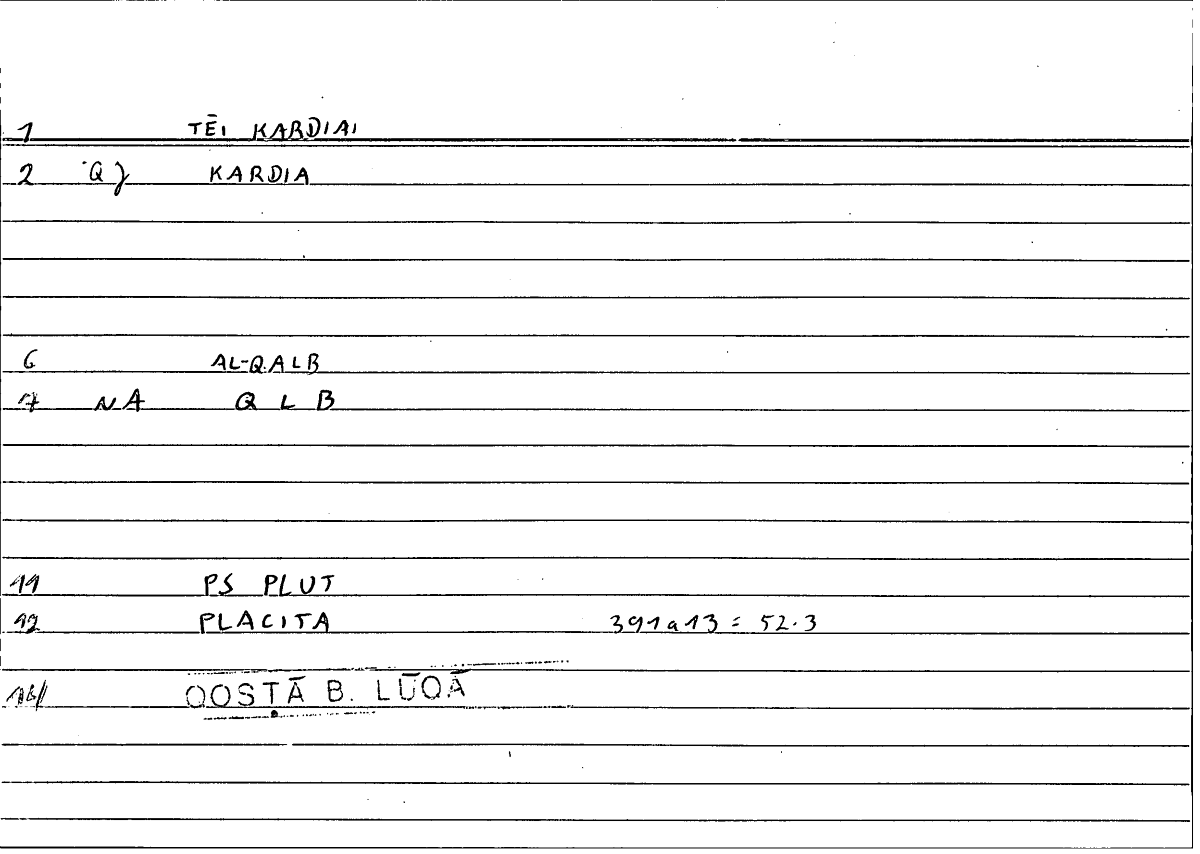 1 TĒI KARDIAI
2 KARDIA
6 AL-QALB
7 NA Q L B
11 PS PLUT
12 PLACITA 391a13 = 52.3
QOSṬĀ B. LŪQĀ